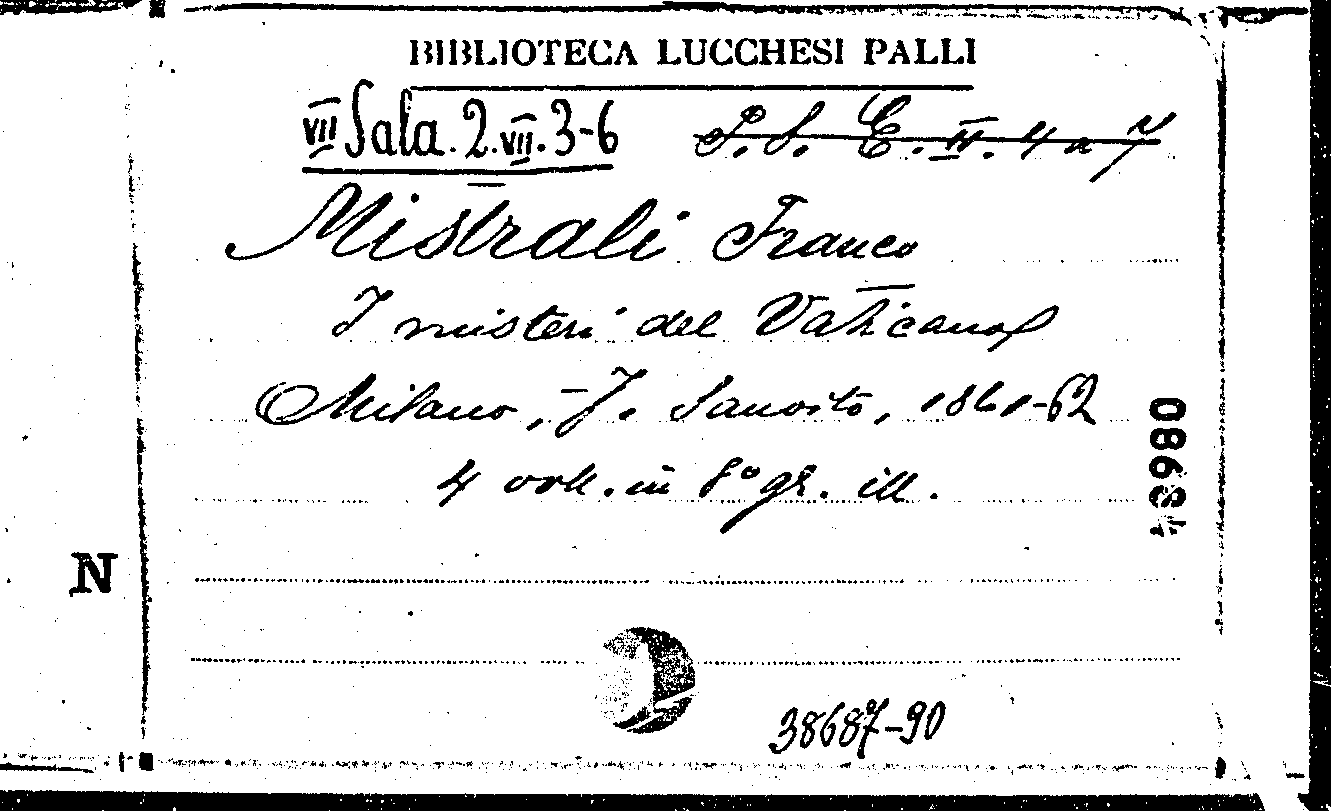 BIBLIOTECA LUCCHESI PALLI
VII Sala. 2. VII. 3-6 P. S. E. II. 4 a 7
Mistrali Franco
I misteri del Vaticano
Milano, F. Sanvito, 1861-62
4 voll. in 8° gr. ill.
N
38687-90